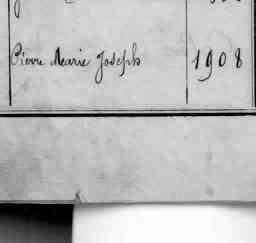 Pierre Marie Joseph 1908